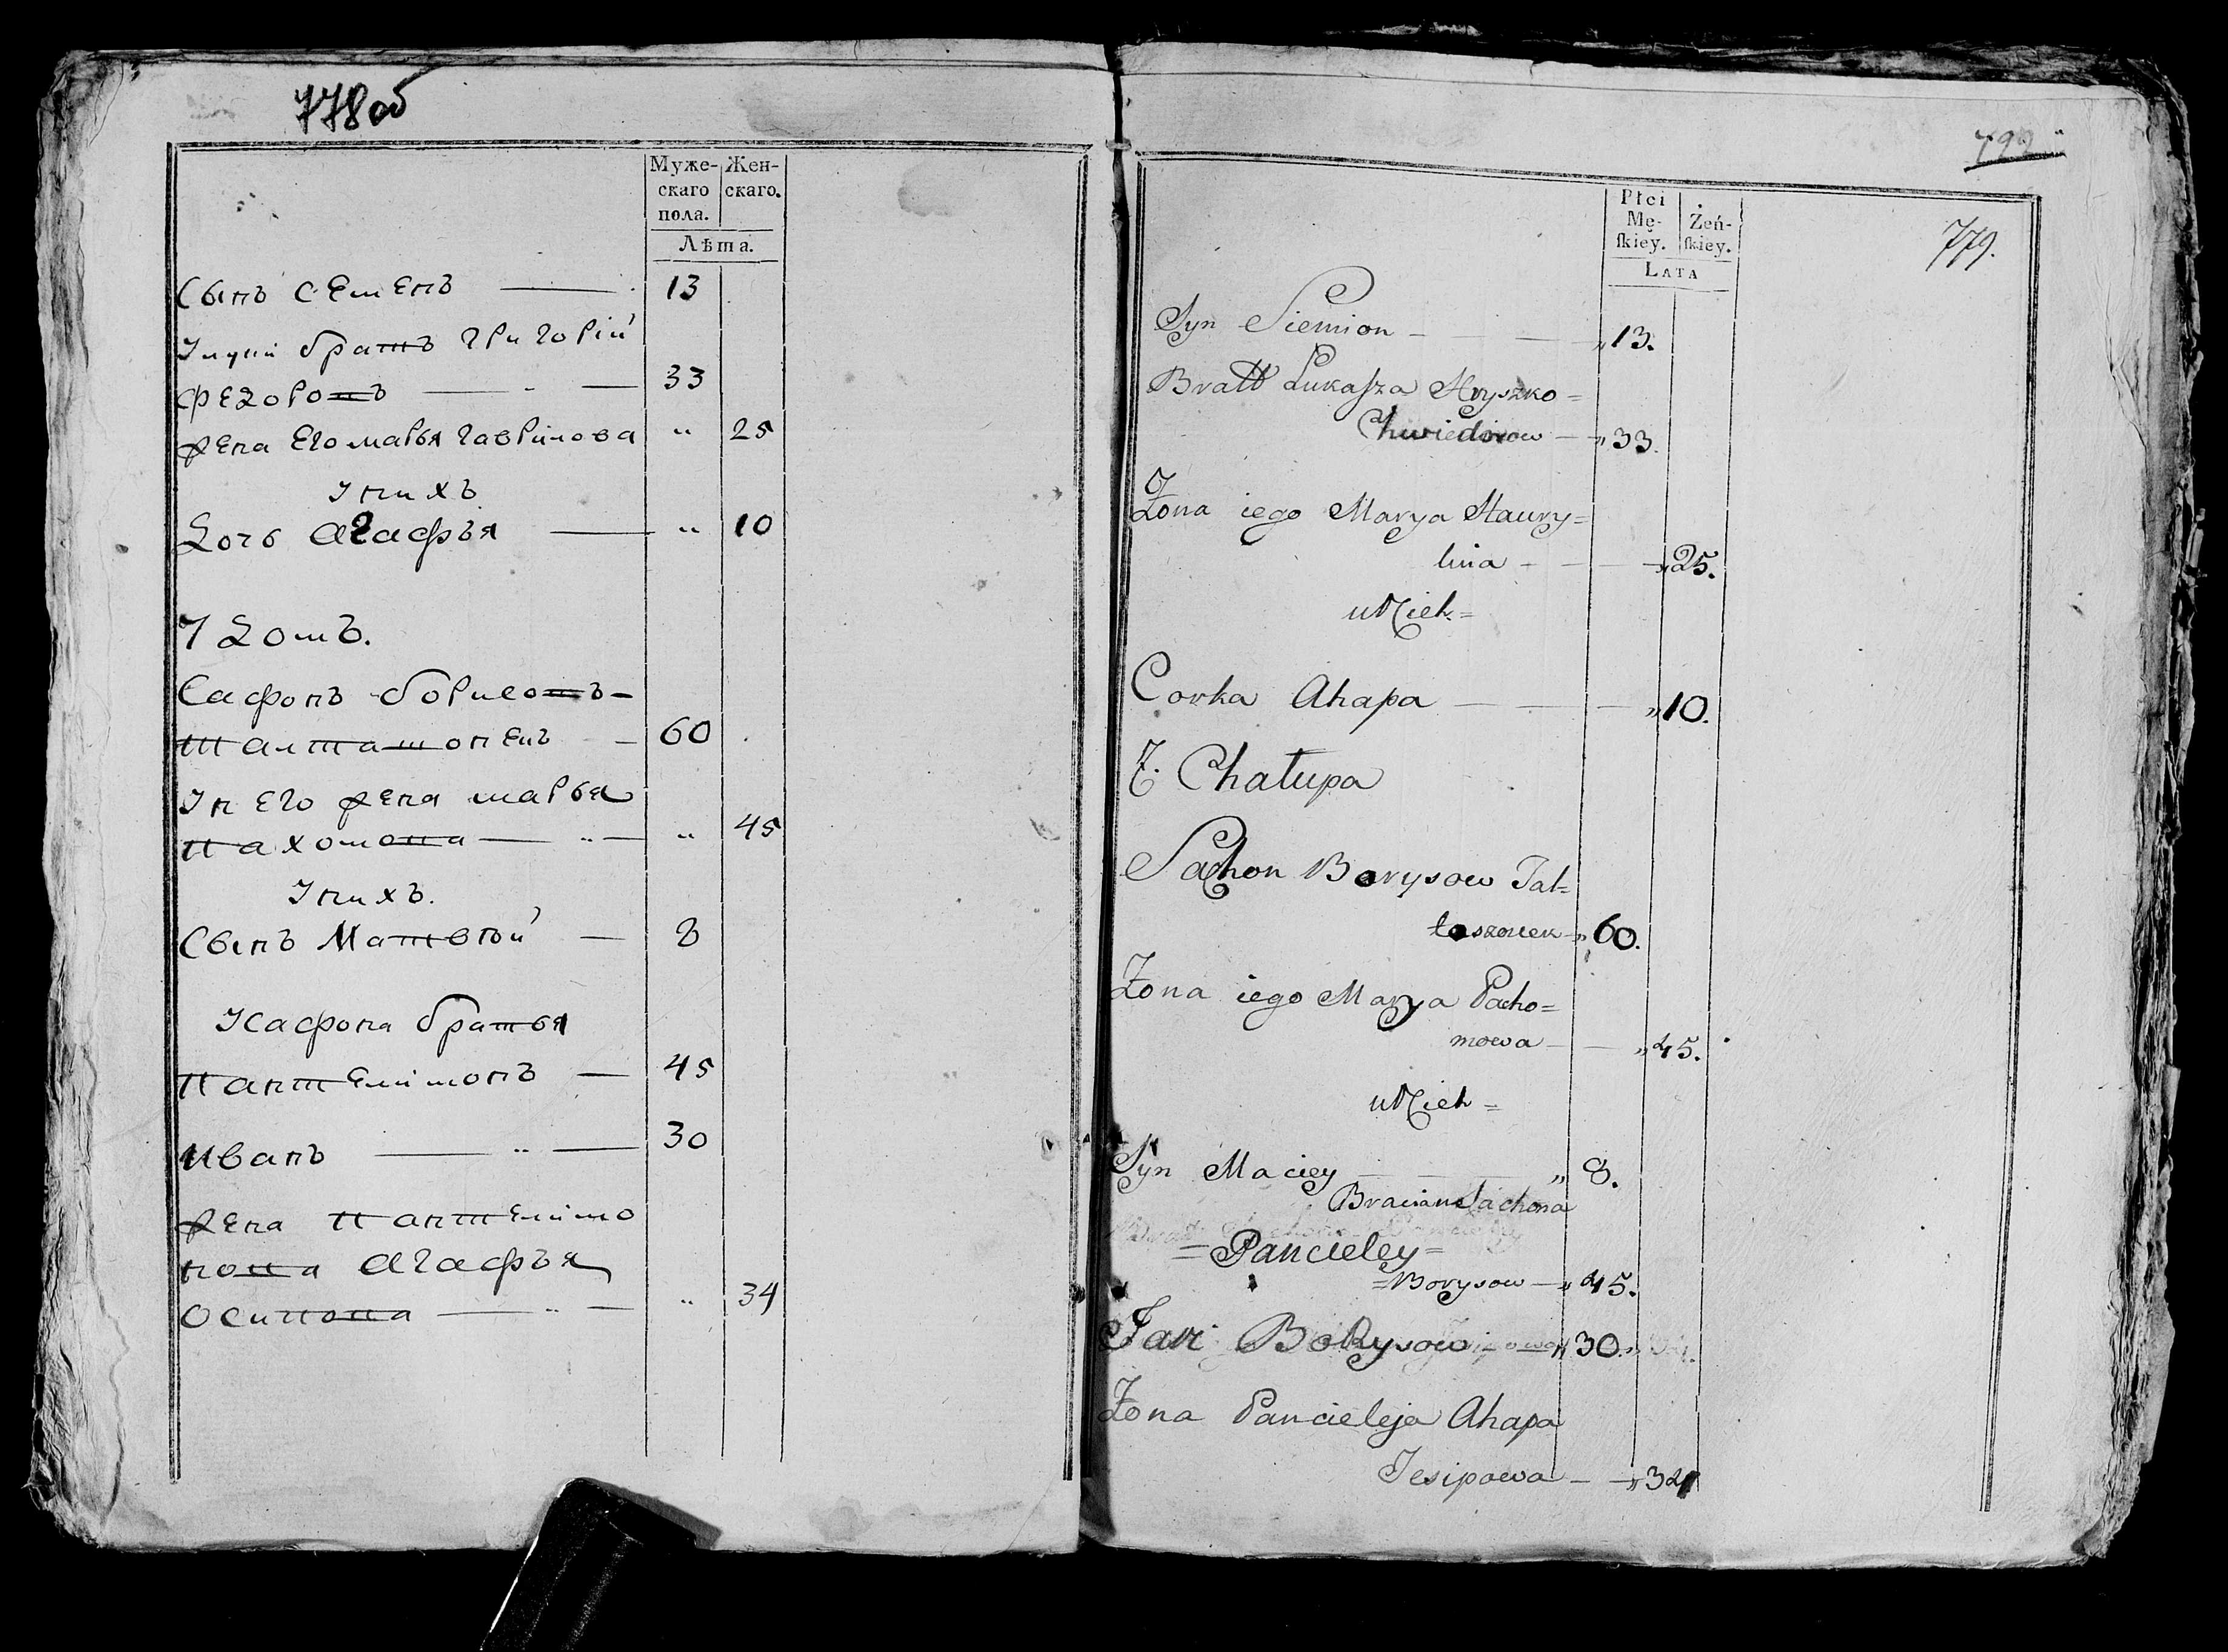 778об
Муже- Жен-
скаго скаго.
пола.
Лѣта.
Сынъ семенъ 13
Лукии братъ григорій
Федоровъ 33
жена его марья гаврилова " 25
У нихъ
Дочь агафья " 10
7 домъ.
Сафонъ борисовъ
талташонекъ 60
У него жена марья
пахомова " 45
У нихъ.
Сынъ Матвѣй 8
У сафона братья
пантелимонъ 45
иванъ 30
жена пантелимо
нова агафья
осипова " 34
799
779.
Płci
Mę- Żeń-
skiey. skiey.
LATA
Syn Siemion „13.
Bratt Łukasza Hryszko=
Chwiedorow „33.
Zona iego Marya Hawry=
lina „25.
u Nich=
Corka Ahapa „10.
7. Chałupa
Sachon Borysow Tal=
taszonek „60.
Zona iego Marya Pacho=
mowa „45.
u Nich=
Syn Maciey „ 8.
Bracia Sachona
=Pancieley=
=Borysow „45.
Jan Borysow „30.
Zona Pancieleja Ahapa
Jesipowa „34